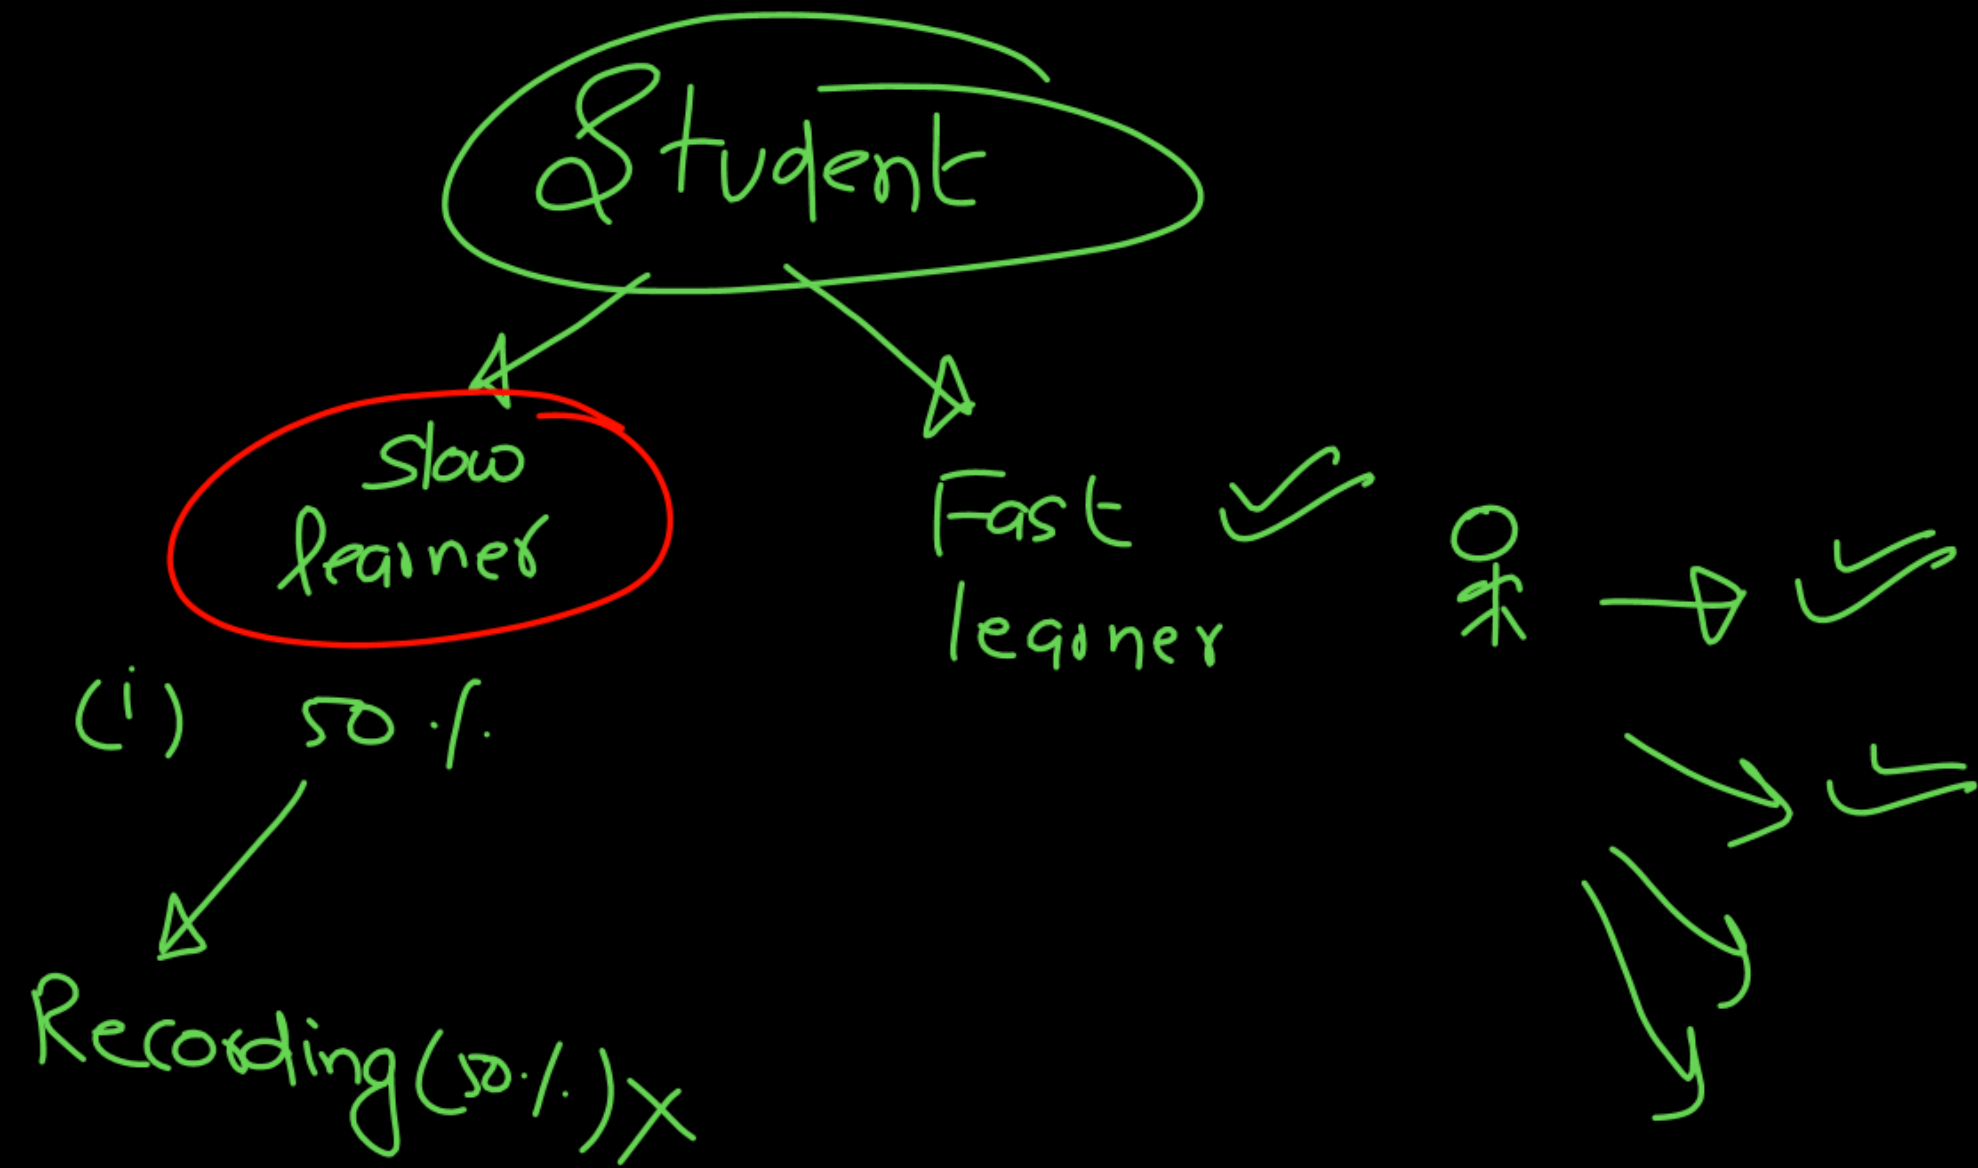 Student
Slow
learner
Fast
learner
(i) 50%
Recording (50%) X